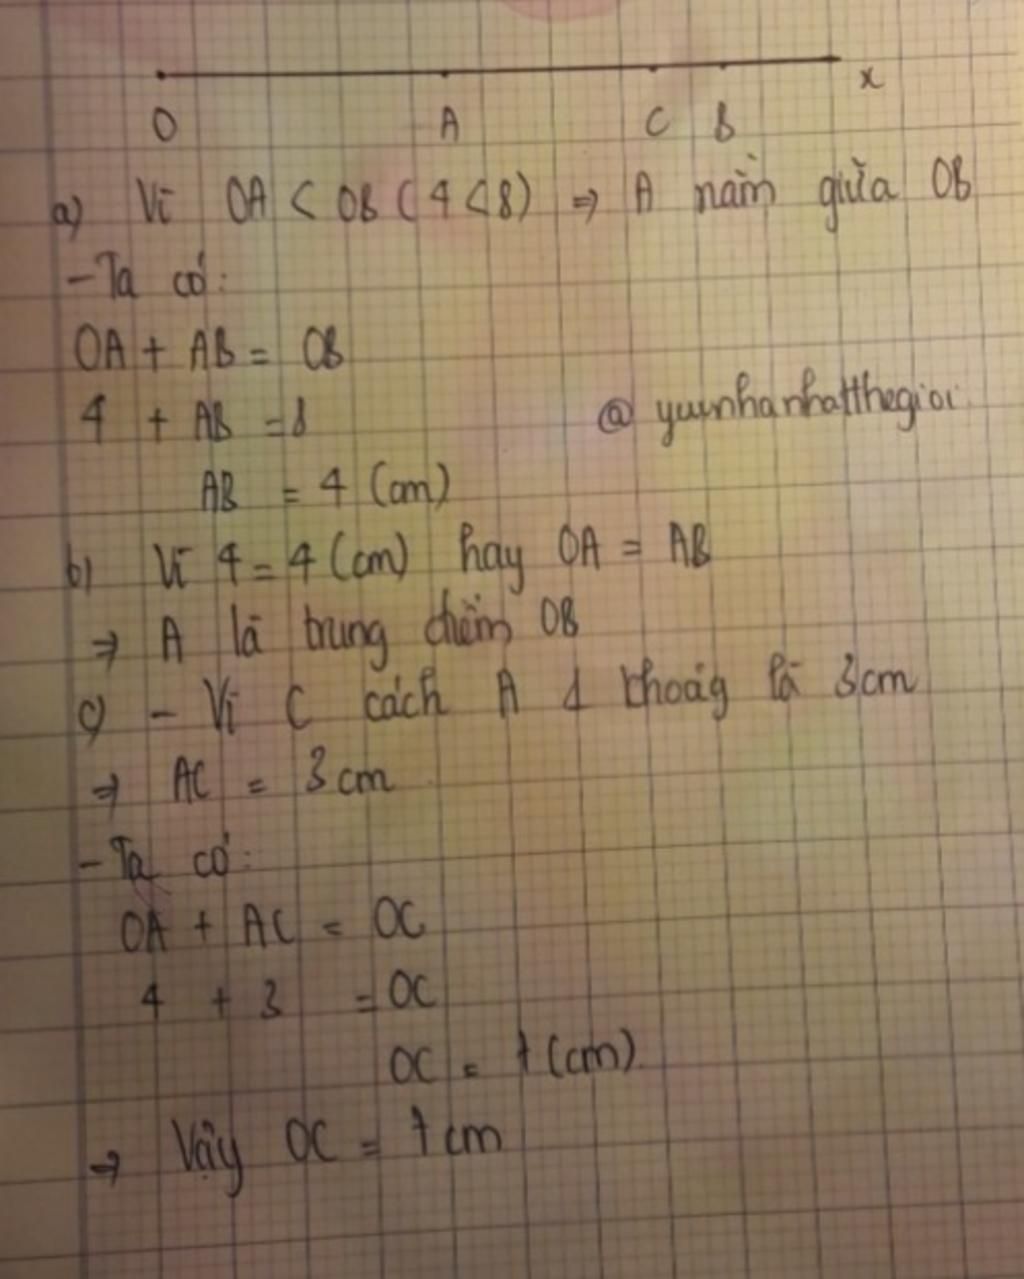 x
O A C B
a) Vì OA < OB (4 < 8) ⇒ A nằm giữa OB
- Ta có:
OA + AB = OB
4 + AB = 8
@ yuunhanhatthegioi
AB = 4 (cm)
b) Vì 4 = 4 (cm) hay OA = AB
⇒ A là trung điểm OB
c) - Vì C cách A 1 khoảg là 3cm
⇒ AC = 3cm
- Ta có:
OA + AC = OC
4 + 3 = OC
OC = 7 (cm)
⇒ Vậy OC = 7cm